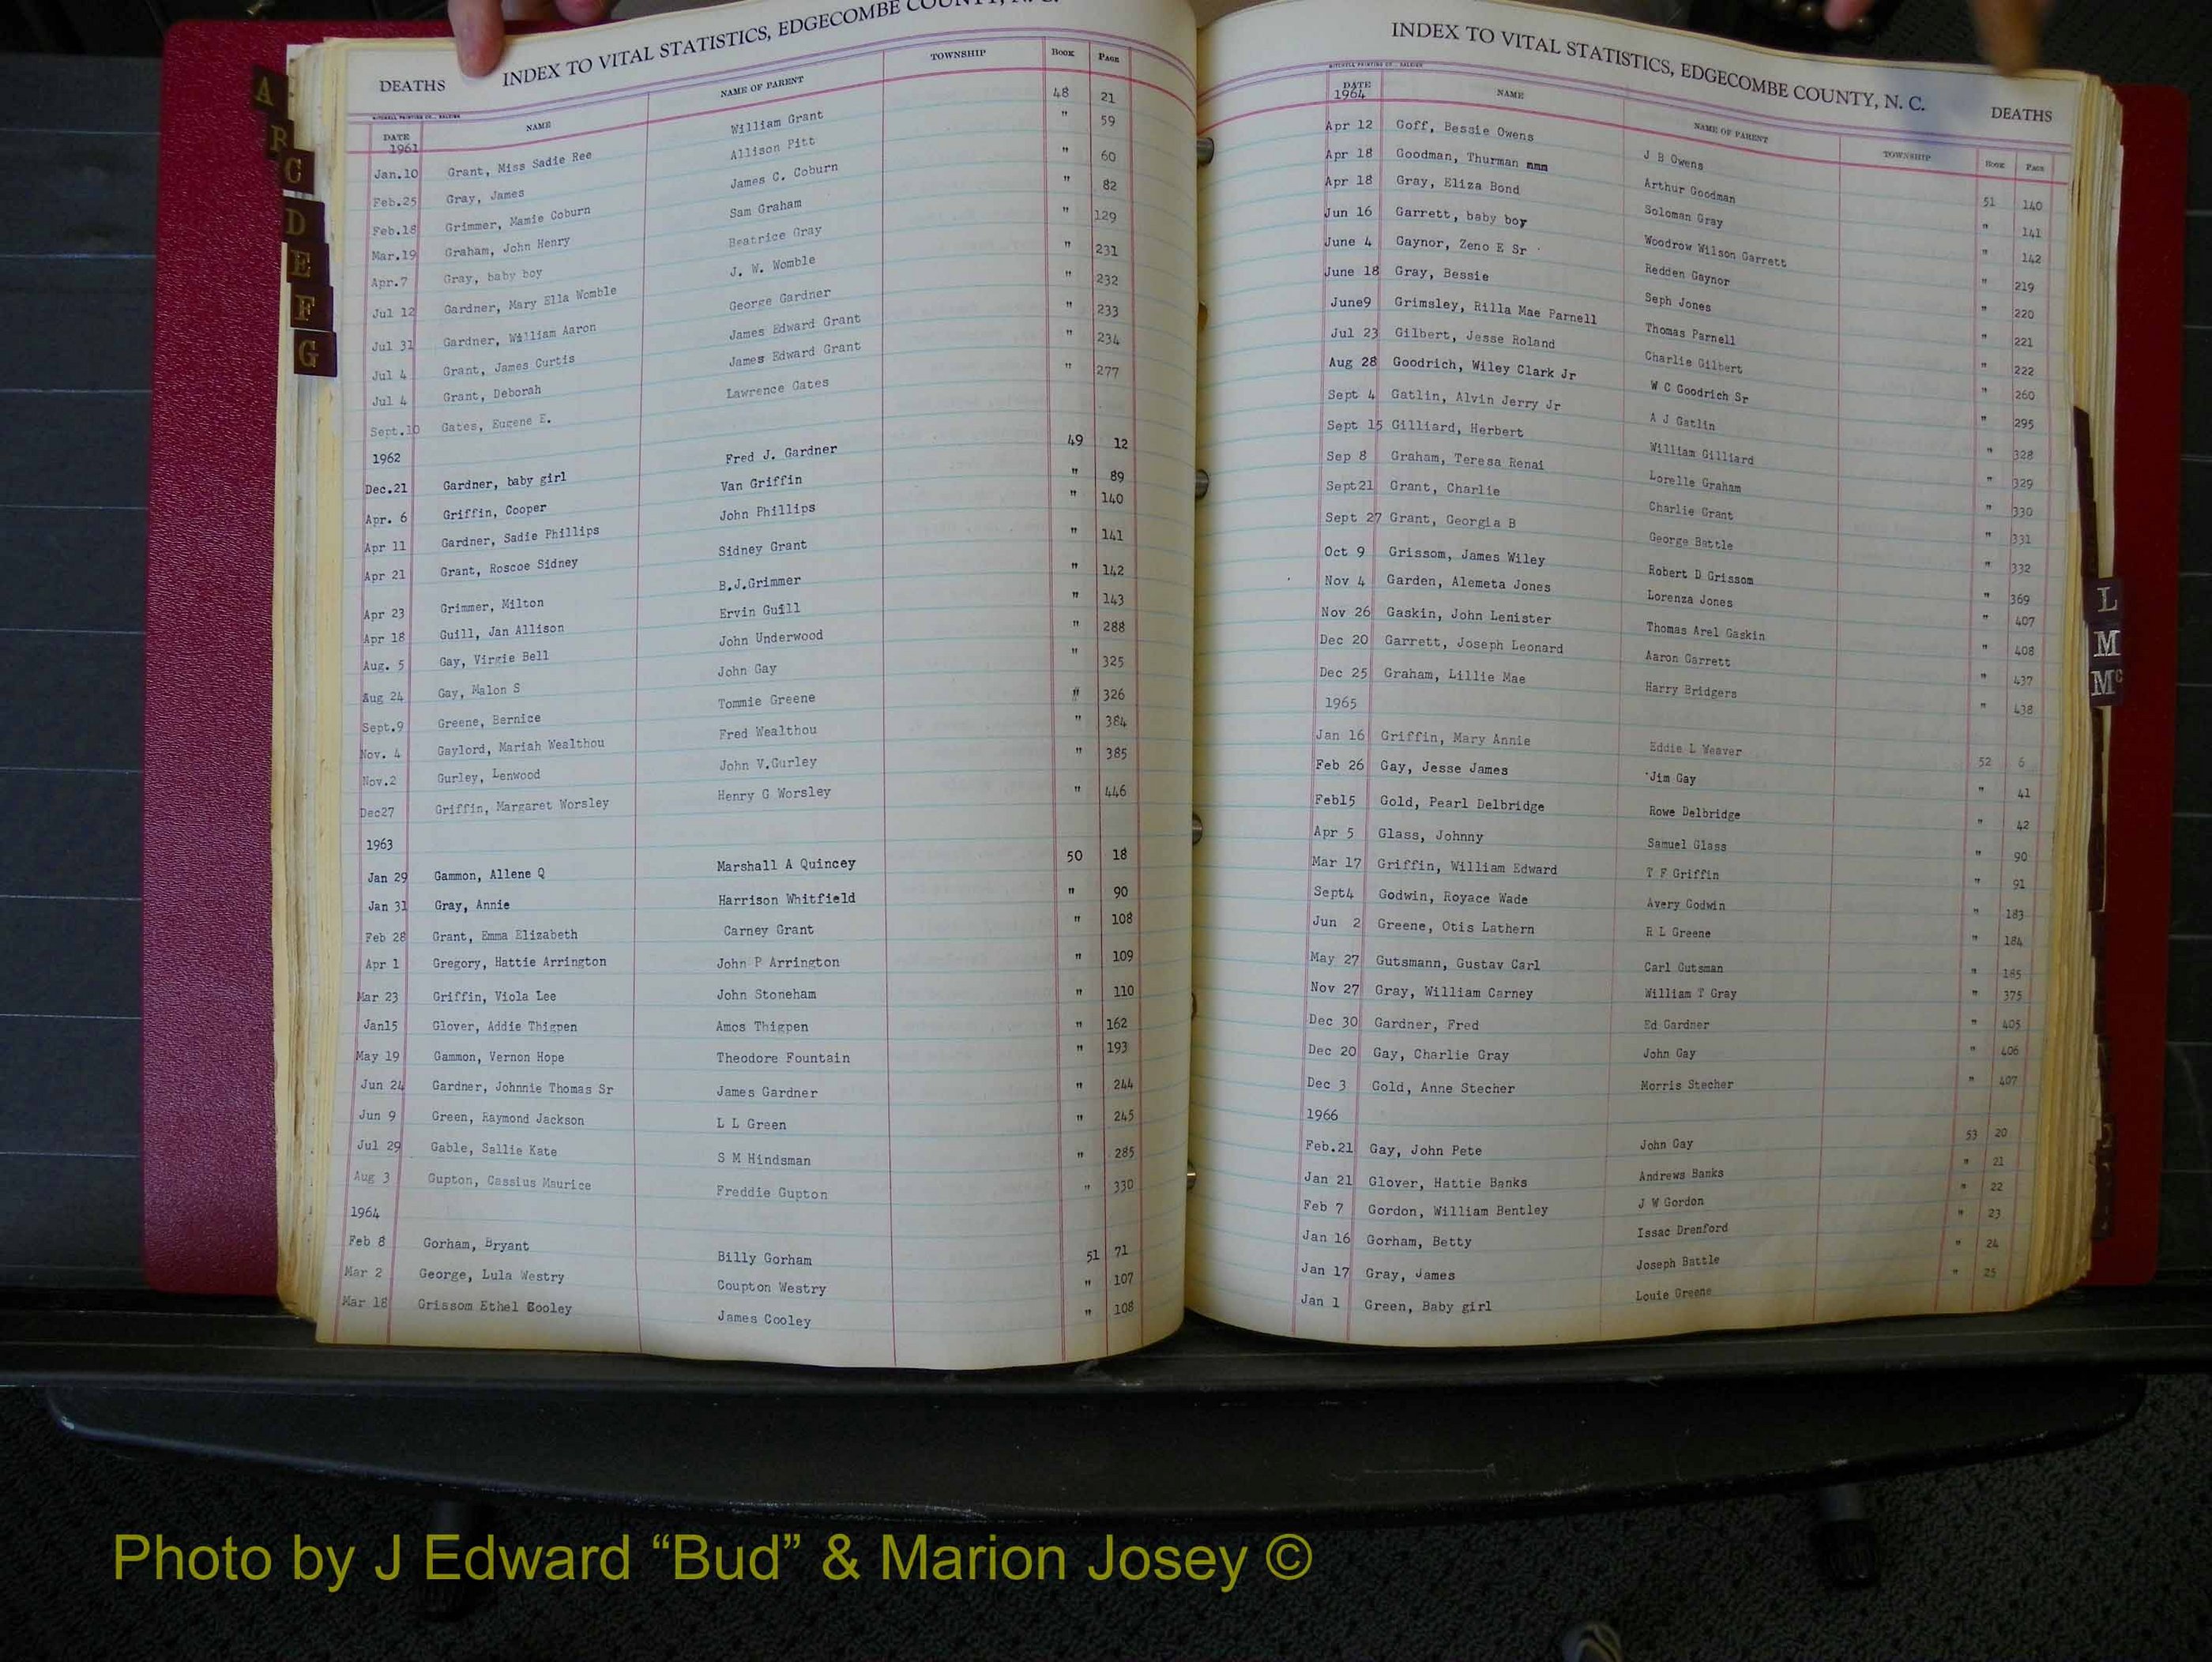 INDEX TO VITAL STATISTICS, EDGECOMBE COUNTY, N. C.
DEATHS
MITCHELL PRINTING CO., RALEIGH
DATE NAME NAME OF PARENT TOWNSHIP BOOK PAGE
1961
Jan.10 Grant, Miss Sadie Ree William Grant 48 21
Feb.25 Gray, James Allison Pitt " 59
Feb.18 Grimmer, Mamie Coburn James C. Coburn " 60
Mar.19 Graham, John Henry Sam Graham " 82
Apr.7 Gray, baby boy Beatrice Gray " 129
Jul 12 Gardner, Mary Ella Womble J. W. Womble " 231
Jul 31 Gardner, William Aaron George Gardner " 232
Jul 4 Grant, James Curtis James Edward Grant " 233
Jul 4 Grant, Deborah James Edward Grant " 234
Sept.10 Gates, Eugene E. Lawrence Gates " 277
1962
Dec.21 Gardner, baby girl Fred J. Gardner 49 12
Apr. 6 Griffin, Cooper Van Griffin " 89
Apr 11 Gardner, Sadie Phillips John Phillips " 140
Apr 21 Grant, Roscoe Sidney Sidney Grant " 141
Apr 23 Grimmer, Milton B.J.Grimmer " 142
Apr 18 Guill, Jan Allison Ervin Guill " 143
Aug. 5 Gay, Virgie Bell John Underwood " 288
Aug 24 Gay, Malon S John Gay " 325
Sept.9 Greene, Bernice Tommie Greene " 326
Nov. 4 Gaylord, Mariah Wealthou Fred Wealthou " 384
Nov.2 Gurley, Lenwood John V.Gurley " 385
Dec27 Griffin, Margaret Worsley Henry G Worsley " 446
1963
Jan 29 Gammon, Allene Q Marshall A Quincey 50 18
Jan 31 Gray, Annie Harrison Whitfield " 90
Feb 28 Grant, Emma Elizabeth Carney Grant " 108
Apr 1 Gregory, Hattie Arrington John P Arrington " 109
Mar 23 Griffin, Viola Lee John Stoneham " 110
Jan15 Glover, Addie Thigpen Amos Thigpen " 162
May 19 Gammon, Vernon Hope Theodore Fountain " 193
Jun 24 Gardner, Johnnie Thomas Sr James Gardner " 244
Jun 9 Green, Raymond Jackson L L Green " 245
Jul 29 Gable, Sallie Kate S M Hindsman " 285
Aug 3 Gupton, Cassius Maurice Freddie Gupton " 330
1964
Feb 8 Gorham, Bryant Billy Gorham 51 71
Mar 2 George, Lula Westry Coupton Westry " 107
Mar 18 Grissom Ethel Cooley James Cooley " 108
A
B
C
D
E
F
G
INDEX TO VITAL STATISTICS, EDGECOMBE COUNTY, N. C.
DEATHS
MITCHELL PRINTING CO., RALEIGH
DATE NAME NAME OF PARENT TOWNSHIP BOOK PAGE
1964
Apr 12 Goff, Bessie Owens J B Owens 51 140
Apr 18 Goodman, Thurman mmm Arthur Goodman " 141
Apr 18 Gray, Eliza Bond Soloman Gray " 142
Jun 16 Garrett, baby boy Woodrow Wilson Garrett " 219
June 4 Gaynor, Zeno E Sr Redden Gaynor " 220
June 18 Gray, Bessie Seph Jones " 221
June9 Grimsley, Rilla Mae Parnell Thomas Parnell " 222
Jul 23 Gilbert, Jesse Roland Charlie Gilbert " 260
Aug 28 Goodrich, Wiley Clark Jr W C Goodrich Sr " 295
Sept 4 Gatlin, Alvin Jerry Jr A J Gatlin " 328
Sept 15 Gilliard, Herbert William Gilliard " 329
Sep 8 Graham, Teresa Renai Lorelle Graham " 330
Sept21 Grant, Charlie Charlie Grant " 331
Sept 27 Grant, Georgia B George Battle " 332
Oct 9 Grissom, James Wiley Robert D Grissom " 369
Nov 4 Garden, Alemeta Jones Lorenza Jones " 407
Nov 26 Gaskin, John Lenister Thomas Arel Gaskin " 408
Dec 20 Garrett, Joseph Leonard Aaron Garrett " 437
Dec 25 Graham, Lillie Mae Harry Bridgers " 438
1965
Jan 16 Griffin, Mary Annie Eddie L Weaver 52 6
Feb 26 Gay, Jesse James Jim Gay " 41
Feb15 Gold, Pearl Delbridge Rowe Delbridge " 42
Apr 5 Glass, Johnny Samuel Glass " 90
Mar 17 Griffin, William Edward T F Griffin " 91
Sept4 Godwin, Royace Wade Avery Godwin " 183
Jun 2 Greene, Otis Lathern R L Greene " 184
May 27 Gutsmann, Gustav Carl Carl Gutsman " 185
Nov 27 Gray, William Carney William T Gray " 375
Dec 30 Gardner, Fred Ed Gardner " 405
Dec 20 Gay, Charlie Gray John Gay " 406
Dec 3 Gold, Anne Stecher Morris Stecher " 407
1966
Feb.21 Gay, John Pete John Gay 53 20
Jan 21 Glover, Hattie Banks Andrews Banks " 21
Feb 7 Gordon, William Bentley J W Gordon " 22
Jan 16 Gorham, Betty Issac Drenford " 23
Jan 17 Gray, James Joseph Battle " 24
Jan 1 Green, Baby girl Louie Greene " 25
L
M
Mc
Photo by J Edward “Bud” & Marion Josey ©